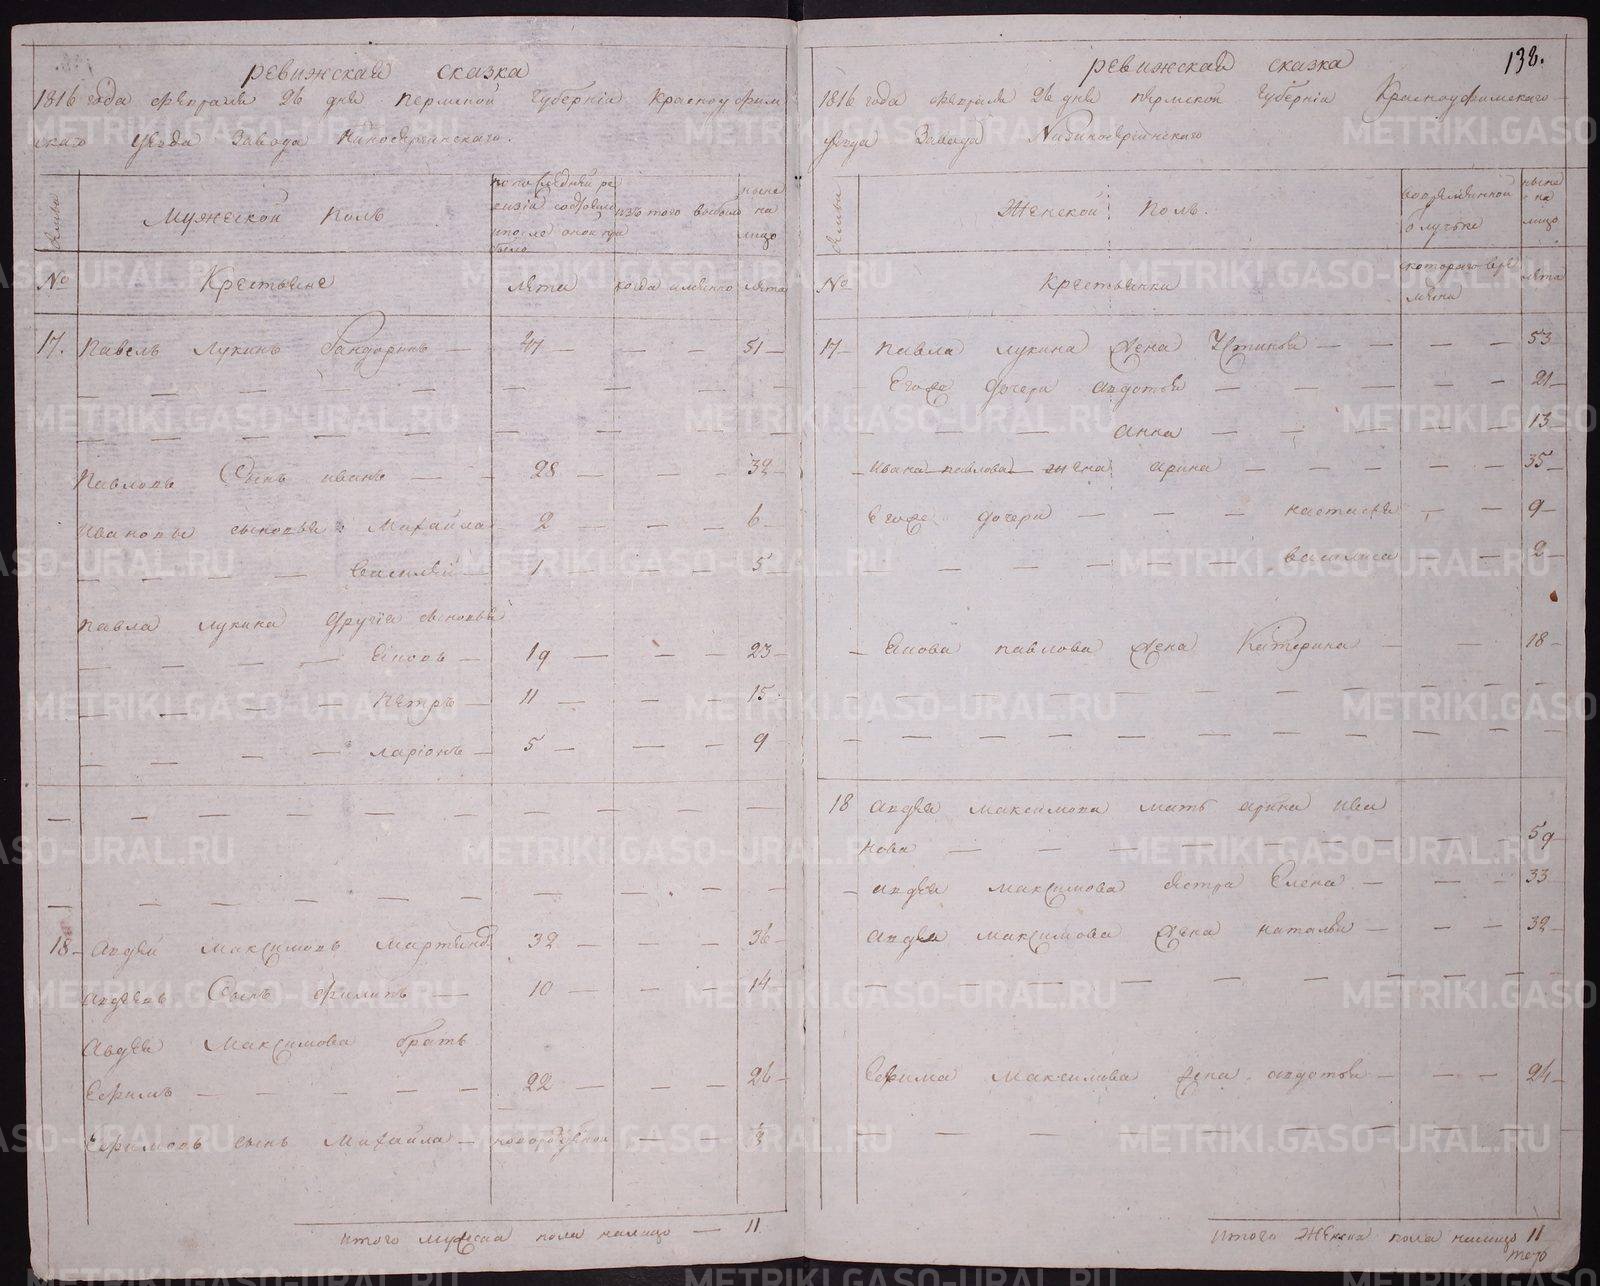 ревижская сказка
1816 года февраля 26 дня пермской губернiи Красноуфим
скаго уезда завода Нижосергинскаго.
Семьи
Мужеской полъ
по последней ре
визiи состояло
и после оной при
было
изъ того выбыло
ныне
на
лицо
№
Крестьяне
лета
когда именно
лета
17. Павелъ Лукинъ — 47 — — — 51 —
Павловъ Сынъ иванъ — — 28 — — — 32 —
Ивановы сыновья Михайла 2 — — — 6 —
— — — — Василей — 1 — — — 5 —
павла лукина другiя сыновья
— — — — — 19 — — — 23 —
— — — — петръ — 11 — — — 15
— — — — ларiонъ — 5 — — — 9
18 — Авдей максимовъ 32 — — — 36 —
Авдеевъ Сынъ филипъ — 10 — — — 14 —
Авдея Максимова братъ
Ефимъ — — — — 22 — — — 26 —
Ефимовъ сынъ Михайла — новорожденной — — 3
итого мужска пола налицо — 11
138.
ревижская сказка
1816 года февраля 26 дня пермской губернiи Красноуфимскаго
уезда Завода
Семьи
Женской полъ.
во временной
отлучке
ныне
на
лицо
№
Крестьянки
с котораго вре
мени
лета
17 — павла лукина жена Устинья — — — — 53
Егоже дочери авдотья — — — — 21 —
— — — анна — — — — 13 —
— ивана павлова жена арина — — — — 35 —
Егоже дочери — — — настасья — — — 9 —
— — — — василиса — — — 2 —
— павлова жена Катерина — — 18 —
18 авдея максимова мать арина ива
нова — — — — — — 59
— авдея максимова сестра Елена — — — 33
авдея максимова жена наталья — — — 32 —
Ефима максимова жена авдотья — — — 24 —
итого женска пола налицо 11